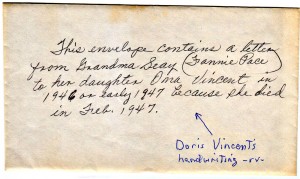 This envelope contains a letter
from Grandma Seay (Fannie Pace)
to her daughter Oma Vincent in
1946 or early 1947 because she died
in Feb. 1947.
Doris Vincent's
handwriting -rv-